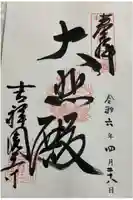 奉拝
大悲殿
吉祥園寺
令和六年四月二十八日